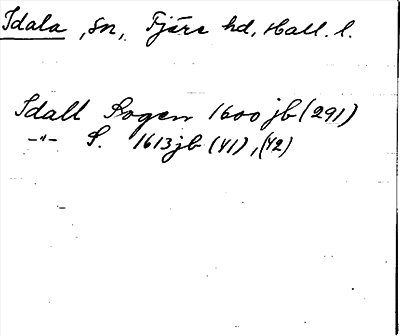 Idala, sn, Fjäre hd, Hall. l.
Idall Sogen 1600 jb (291)
–"– S. 1613 jb (41), (42)